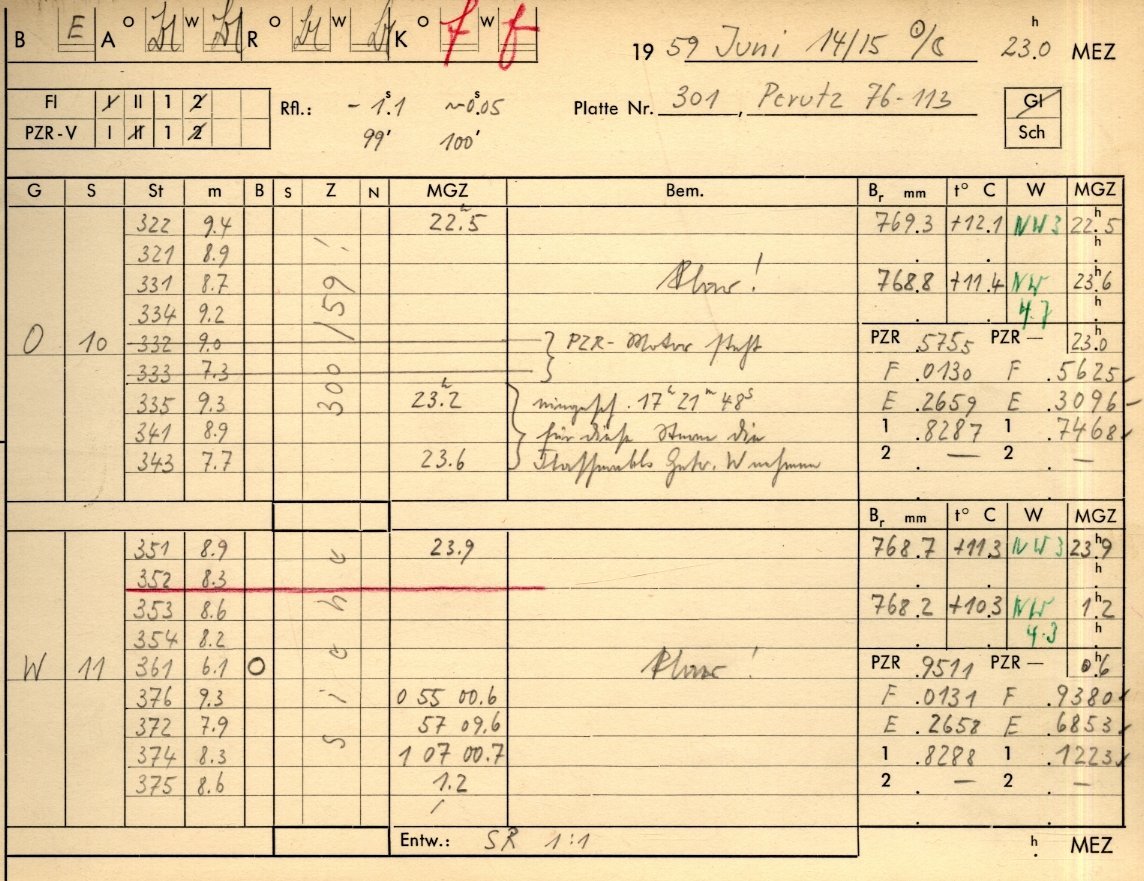 B E A O W R O W K O f W f
19 59 Juni 14/15 ☉/☾ 23.0 h MEZ
Fl I II 1 2
PZR-V I II 1 2
Rfl.: - 1.s1 ~0.s05
99' 100'
Platte Nr. 301, Perutz 76-113
Gl
Sch
G S St m B S Z N MGZ Bem. Br mm t° C W MGZ
322 9.4 22.h5 769.3 +12.1 NW3 22.h5
321 8.9 h
331 8.7 Klar! 768.8 +11.4 NW 23.h6
334 9.2 4.7 h
O 10 332 9.0 300/59! PZR-Motor steht PZR .5755 PZR — 23.h0
333 7.3 F .0130 F .5625
335 9.3 23.h2 eingesch. 17h 21m 48s E .2659 E .3096
341 8.9 für diese Sterne die 1 .8287 1 .7468
343 7.7 23.6 W nehmen 2 — 2 —
Br mm t° C W MGZ
351 8.9 23.9 768.7 +11.3 NW3 23.h9
352 8.3 h
353 8.6 768.2 +10.3 NW 1.h2
354 8.2 4.3 h
W 11 361 6.1 O siehe Klar! PZR .9511 PZR — 0.h6
376 9.3 0 55 00.6 F .0131 F .9380
372 7.9 57 09.6 E .2658 E .6853
374 8.3 1 07 00.7 1 .8288 1 .1223
375 8.6 1.2 2 — 2 —
Entw.: SR 1:1 h MEZ